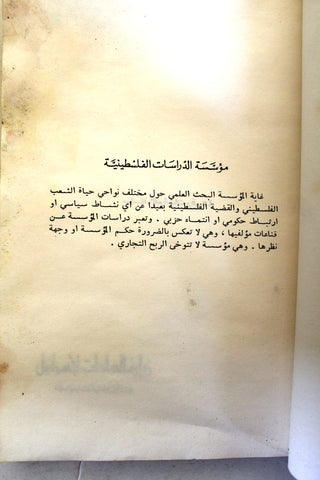 مؤسَّسَة الدّراسَات الفلسْطينيَّة
غاية المؤسسة البحث العلمي حول مختلف نواحي حياة الشعب
الفلسطيني والقضية الفلسطينية بعيدا عن أي نشاط سياسي او
ارتباط حكومي او انتماء حزبي . وتعبر دراسات المؤسسة عن
قناعات مؤلفيها ، وهي لا تعكس بالضرورة حكم المؤسسة او وجهة
نظرها . وهي مؤسسة لا تتوخى الربح التجاري .